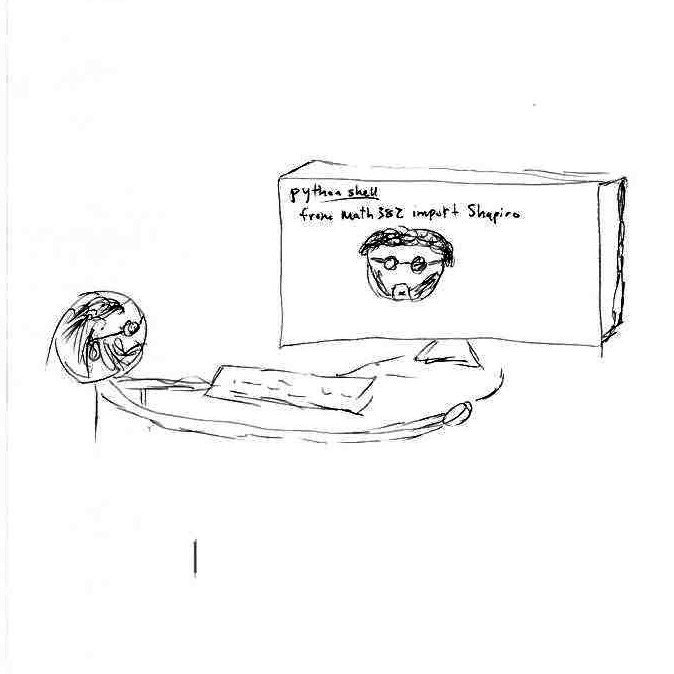 python shell
from Math 382 import Shapiro